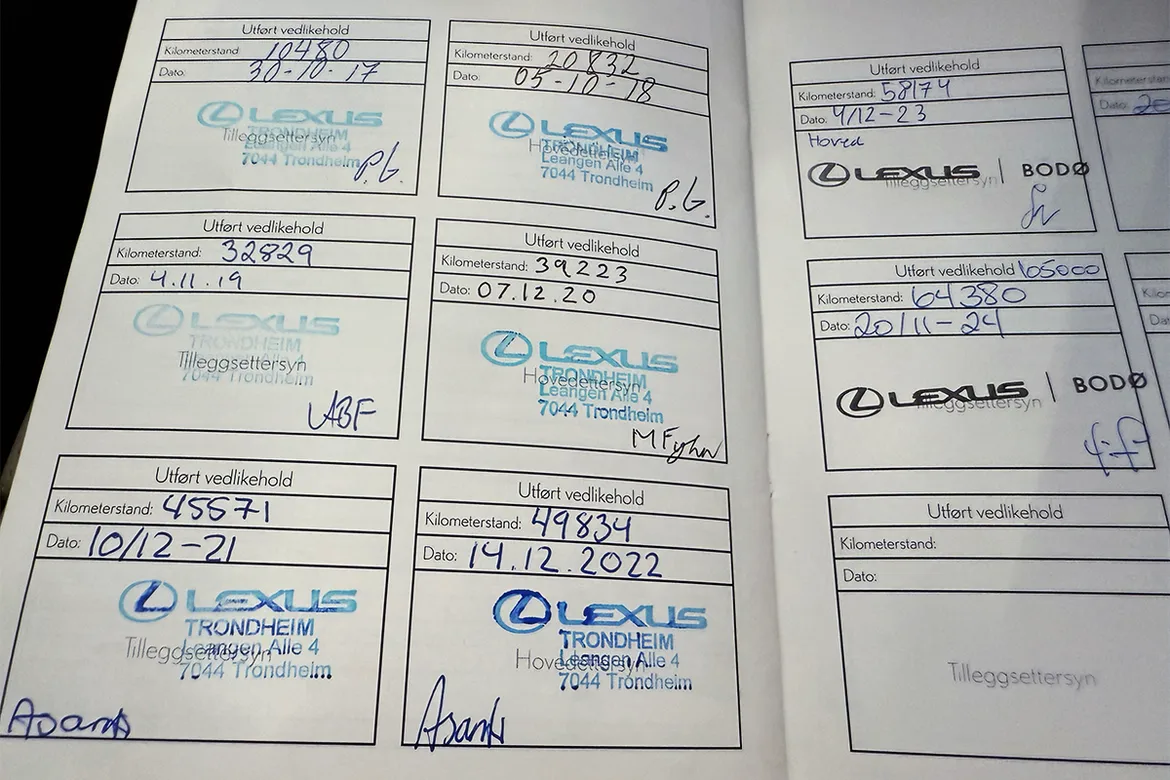 Utført vedlikehold
Kilometerstand: 10480
Dato: 30-10-17
LEXUS
TRONDHEIM
Tilleggsettersyn
Leangen Alle 4
7044 Trondheim
P.G.
Utført vedlikehold
Kilometerstand: 20832
Dato: 05-10-18
LEXUS
TRONDHEIM
Hovedettersyn
Leangen Alle 4
7044 Trondheim
P.G.
Utført vedlikehold
Kilometerstand: 32829
Dato: 4.11.19
LEXUS
TRONDHEIM
Tilleggsettersyn
7044 Trondheim
UBF
Utført vedlikehold
Kilometerstand: 39223
Dato: 07.12.20
LEXUS
TRONDHEIM
Hovedettersyn
Leangen Alle 4
7044 Trondheim
MFyhn
Utført vedlikehold
Kilometerstand: 45571
Dato: 10/12-21
LEXUS
TRONDHEIM
Tilleggsettersyn
Leangen Alle 4
7044 Trondheim
Utført vedlikehold
Kilometerstand: 49834
Dato: 14.12.2022
LEXUS
TRONDHEIM
Leangen Alle 4
Hovedettersyn
7044 Trondheim
Utført vedlikehold
Kilometerstand: 58174
Dato: 4/12-23
Hoved
LEXUS | BODØ
Tilleggsettersyn
Utført vedlikehold 105000
Kilometerstand: 64380
Dato: 20/11-24
LEXUS | BODØ
Tilleggsettersyn
Utført vedlikehold
Kilometerstand:
Dato:
Tilleggsettersyn
Kilometerstan
Dato: 20
Kilo
Dat